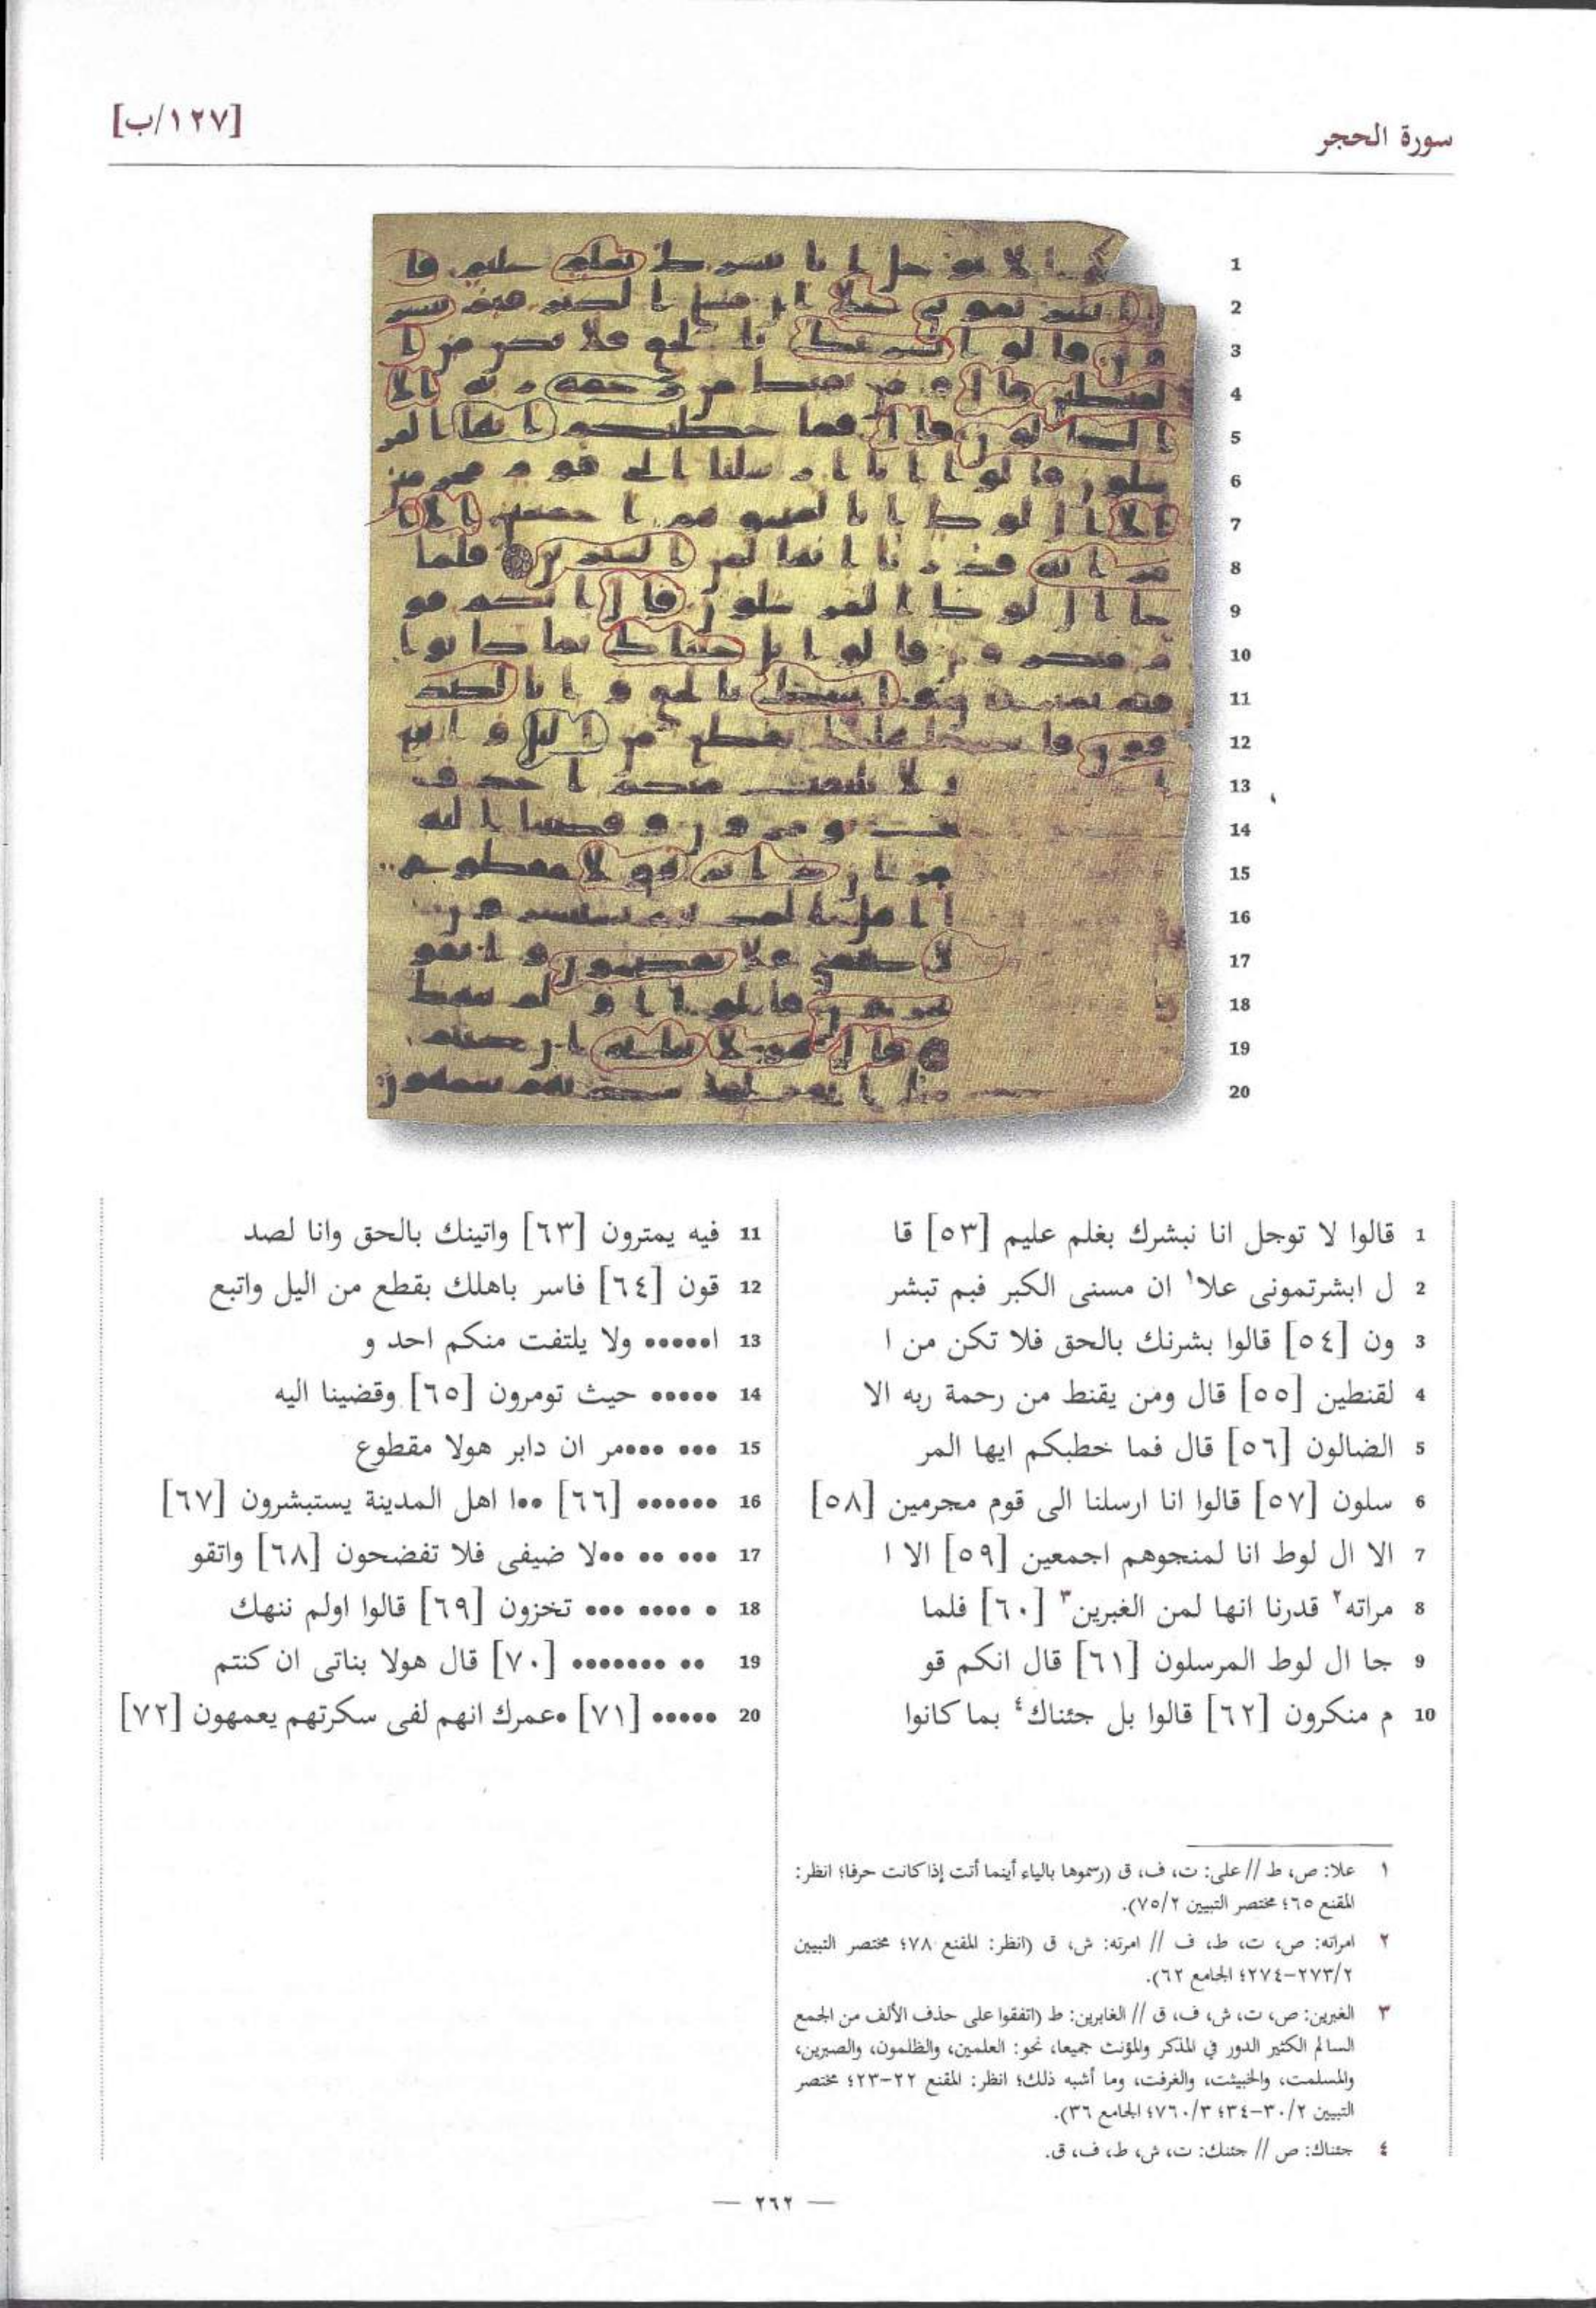 سورة الحجر
[١٢٧/ب]
1 قالوا لا توجل انا نبشرك بغلم عليم [٥٣] قا
2 ل ابشرتمونى علا١ ان مسنى الكبر فبم تبشر
3 ون [٥٤] قالوا بشرنك بالحق فلا تكن من ا
4 لقنطين [٥٥] قال ومن يقنط من رحمة ربه الا
5 الضالون [٥٦] قال فما خطبكم ايها المر
6 سلون [٥٧] قالوا انا ارسلنا الى قوم مجرمين [٥٨]
7 الا ال لوط انا لمنجوهم اجمعين [٥٩] الا ا
8 مراته٢ قدرنا انها لمن الغبرين٣ [٦٠] فلما
9 جا ال لوط المرسلون [٦١] قال انكم قو
10 م منكرون [٦٢] قالوا بل جئناك٤ بما كانوا
11 فيه يمترون [٦٣] واتينك بالحق وانا لصد
12 قون [٦٤] فاسر باهلك بقطع من اليل واتبع
13 ا••••• ولا يلتفت منكم احد و
14 ••••• حيث تومرون [٦٥] وقضينا اليه
15 ••• •••مر ان دابر هولا مقطوع
16 •••••• [٦٦] ••ا اهل المدينة يستبشرون [٦٧]
17 ••• •• ••لا ضيفى فلا تفضحون [٦٨] واتقو
18 • •••• ••• تخزون [٦٩] قالوا اولم ننهك
19 •• ••••••• [٧٠] قال هولا بناتى ان كنتم
20 ••••• [٧١] •عمرك انهم لفى سكرتهم يعمهون [٧٢]
١ علا: ص، ط // على: ت، ف، ق (رسموها بالياء أينما أتت إذا كانت حرفا؛ انظر:
المقنع ٦٥؛ مختصر التبيين ٧٥/٢).
٢ امراته: ص، ت، ط، ف // امرته: ش، ق (انظر: المقنع ٧٨؛ مختصر التبيين
٢٧٣/٢-٢٧٤؛ الجامع ٦٢).
٣ الغبرين: ص، ت، ش، ف، ق // الغابرين: ط (اتفقوا على حذف الألف من الجمع
السالم الكثير الدور في المذكر والمؤنث جميعا، نحو: العلمين، والظلمون، والصبرين،
والمسلمت، والخبيثت، والغرفت، وما أشبه ذلك؛ انظر: المقنع ٢٢-٢٣؛ مختصر
التبيين ٣٠/٢-٣٤؛ ٧٦٠/٣؛ الجامع ٣٦).
٤ جئناك: ص // جئنك: ت، ش، ط، ف، ق.
— ٢٦٢ —